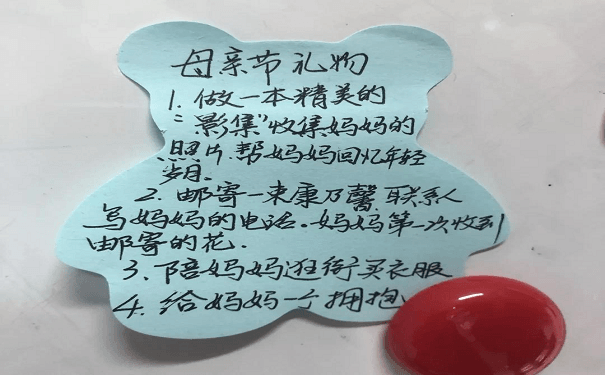 母亲节礼物
1. 做一本精美的
“影集”收集妈妈的
照片.帮妈妈回忆年轻
岁月.
2. 邮寄一束康乃馨.联系人
写妈妈的电话.妈妈第一次收到
邮寄的花.
3. 陪妈妈逛街买衣服
4. 给妈妈一个拥抱